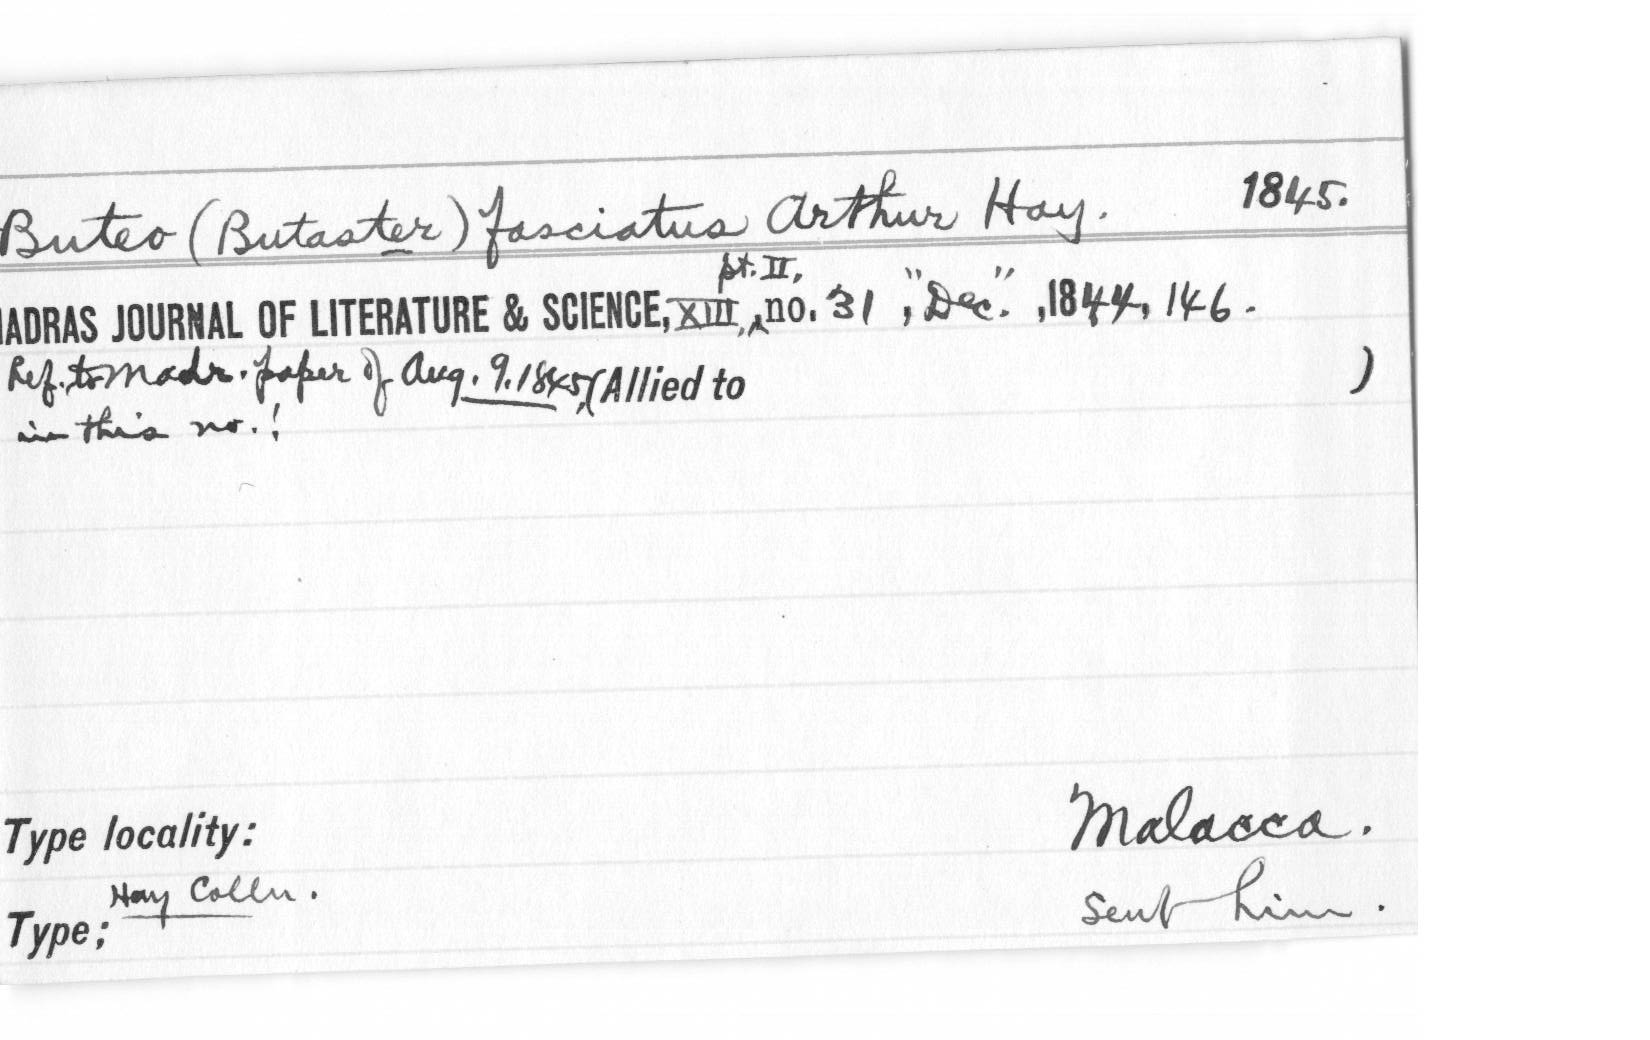 Buteo (Butaster) fasciatus Arthur Hay. 1845.
MADRAS JOURNAL OF LITERATURE & SCIENCE, XIII, pt. II, no. 31, "Dec.", 1844, 146.
Ref. to Madr. paper of Aug. 9. 1845, (Allied to )
in this no.!
Type locality: Malacca.
Hay Colln. sent him.
Type;